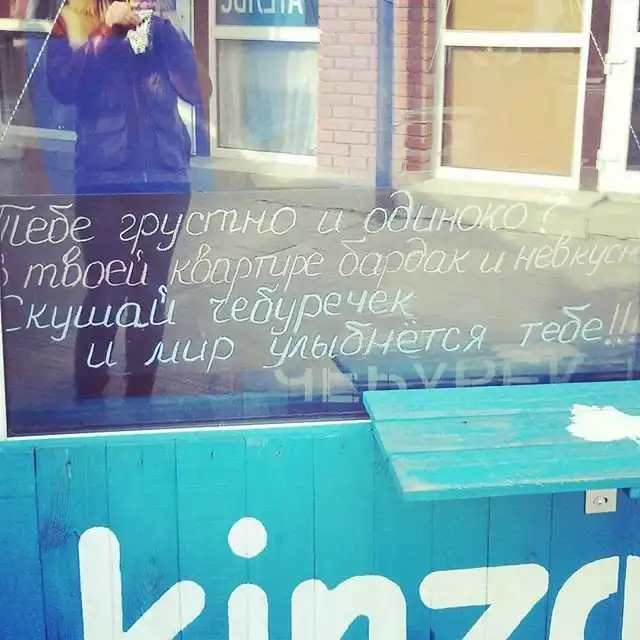 Тебе грустно и одиноко?
В твоей квартире бардак и невкусн
Скушай чебуречек
и мир улыбнётся тебе!!!
ЧЕБУРЕК
kinza